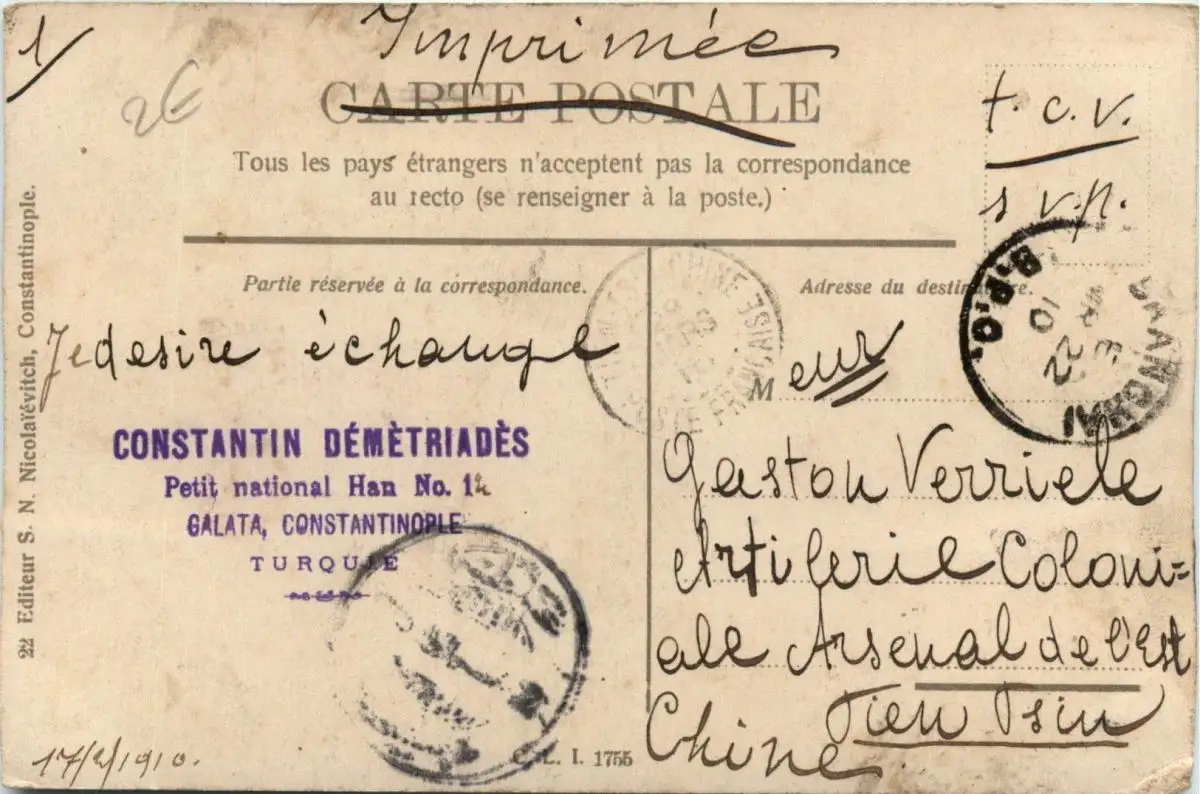 1/
Imprimée
2€
CARTE POSTALE
t.c.v.
s v.p.
Tous les pays étrangers n'acceptent pas la correspondance
au recto (se renseigner à la poste.)
Partie réservée à la correspondance.
Adresse du destinataire.
Je desire échange
CONSTANTIN DÉMÈTRIADÈS
Petit national Han No. 12
GALATA, CONSTANTINOPLE
TURQUIE
CHINE
POSTE FRANÇAISE
SHANGHAI
B.P.O.
22
10
M eur
Gaston Verriele
Artilerie Coloni=
ale Arsenal de l'Est
Tien Tsin
Chine
17/2/1910.
C. L. I. 1755
22 Editeur S. N. Nicolaïévitch, Constantinople.